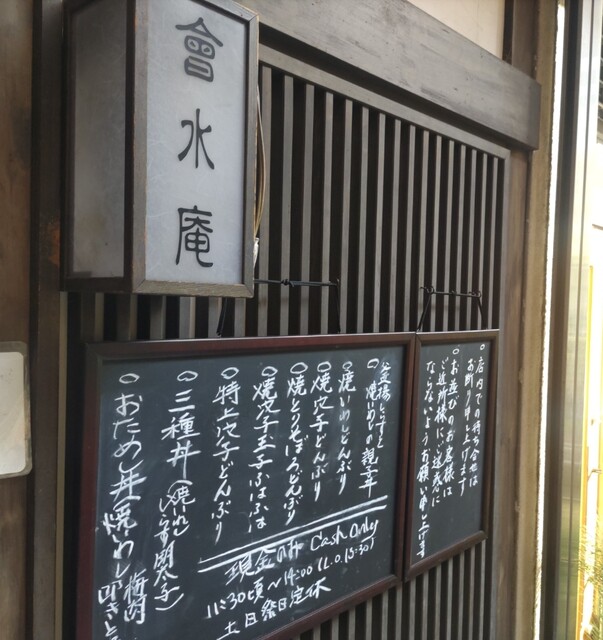 會水庵
○店内での待ち合せは
お断り申し上げます
○お並びのお客様は
ご近所様にご迷惑に
ならないようお願い申し上げます
○釜揚しらすと
焼いわしの親子丼
○焼いわしどんぶり
○焼穴子どんぶり
○焼とりそぼろどんぶり
○焼穴子玉子ふはふは
○特上穴子どんぶり
○三種丼(焼いわし
しらす 明太子)
○おためし丼 焼いわし 叩き
梅肉
現金のみ Cash Only
11:30頃〜14:00(L.O.13:30)
土日祭日定休